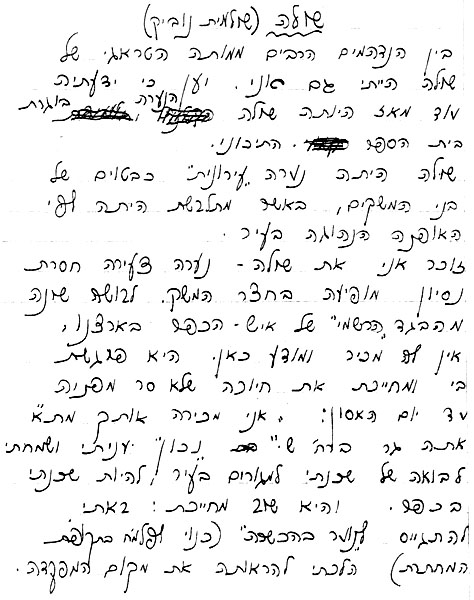 שולה (שולמית נוביק)
בין הנדהמים הרבים ממותה הטראגי של
שולה הייתי גם אני. ועוד כי ידעתיה
עוד מאז היותה שולה הנערה, בוגרת
בית הספר התיכוני.
שולה היתה נערה "עירונית" כבטוים של
בני המשקים, באשר מתלבשת היתה לפי
האופנה הנהוגה בעיר.
זוכר אני את שולה - נערה צעירה חסרת
נסיון מופיעה בחצר המשק. לבושה שונה
מהבגד "הרשמי" של איש-הכפר בארצנו,
אין לה מכיר ומודע כאן. היא פוגשת
בי ומחייכת את חיוכה שלא סר מפניה
עד יום האסון: "אני מכירה אותך מת"א
אתה גר ברח' ש." "נכון" עניתי ושמחתי
לבואה של שכנתי למגורים בעיר, להיות שכנתי
בכפר. והיא שוב מחייכת: באתי
להתגייס "לנוער בהכשרה" (כנוי לפלמ"ח בתקופת
המחתרת) הלכתי להראותה את מקום המפקדה.